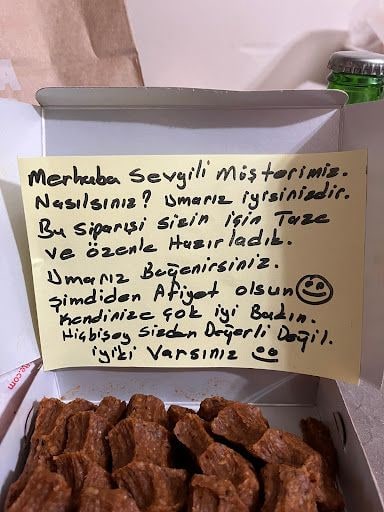 Merhaba Sevgili Müşterimiz.
Nasılsınız? Umarız iyisinizdir.
Bu Siparişi sizin için Taze
ve özenle Hazırladık.
Umarız Beğenirsiniz.
Şimdiden Afiyet olsun
Kendinize çok iyi Bakın.
Hiçbişey Sizden Değerli Değil.
iyiki Varsınız